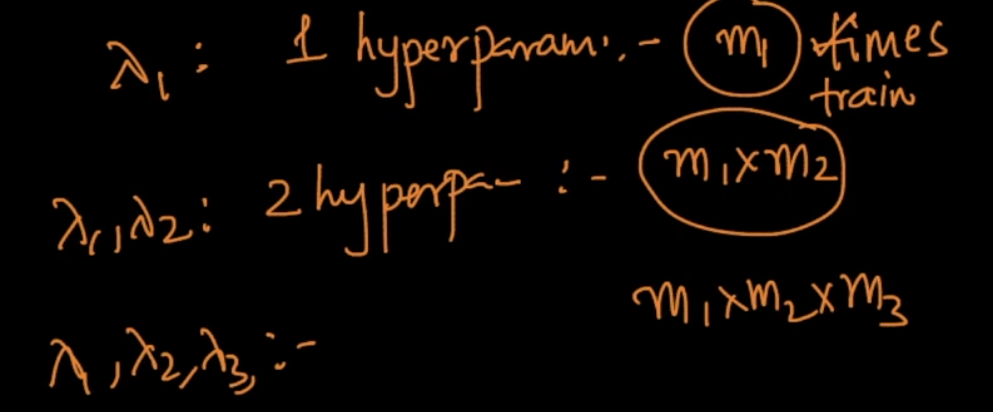 λ₁ : 1 hyperparam :- m₁ times
train
λ₁, λ₂ : 2 hyperpa- :- m₁×m₂
m₁×m₂×m₃
λ₁, λ₂, λ₃, :-